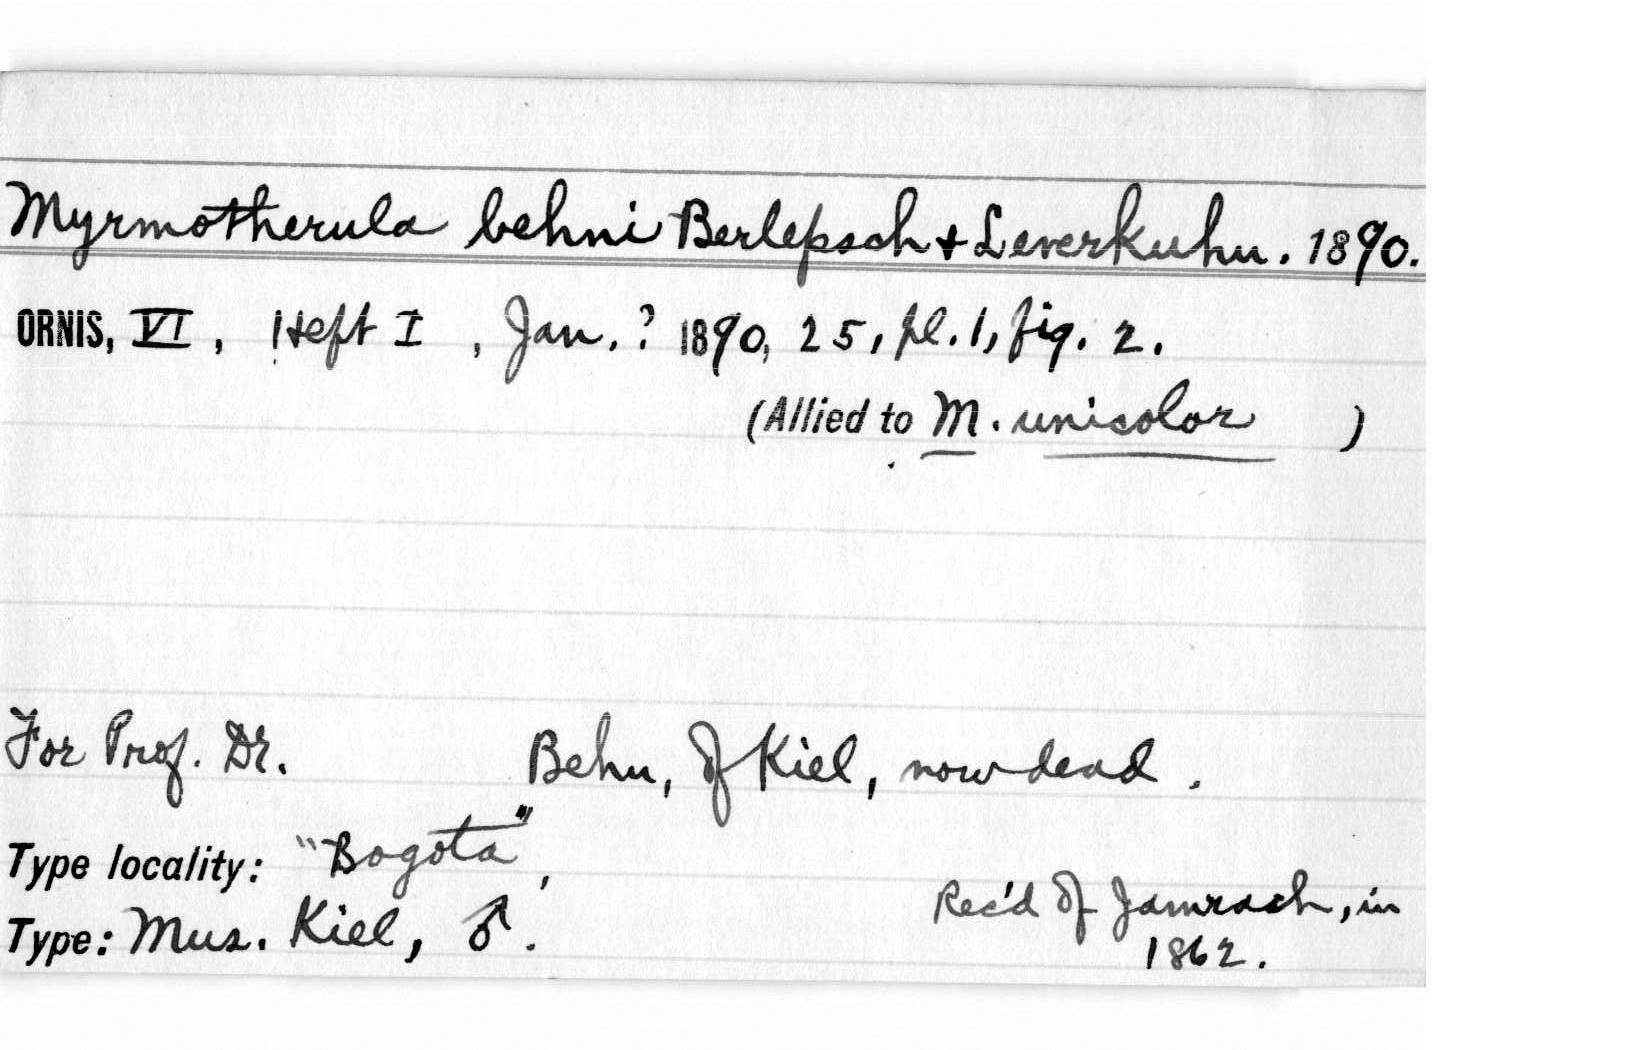 Myrmotherula behni Berlepsch + Leverkuhn. 1890.
ORNIS, VI, Heft I, Jan.? 1890, 25, pl. 1, fig. 2.
(Allied to M. unicolor )
For Prof. Dr. Behn, of Kiel, now dead.
Type locality: "Bogota",
Rec'd of Jamrach, in
Type: Mus. Kiel, ♂.
1862.